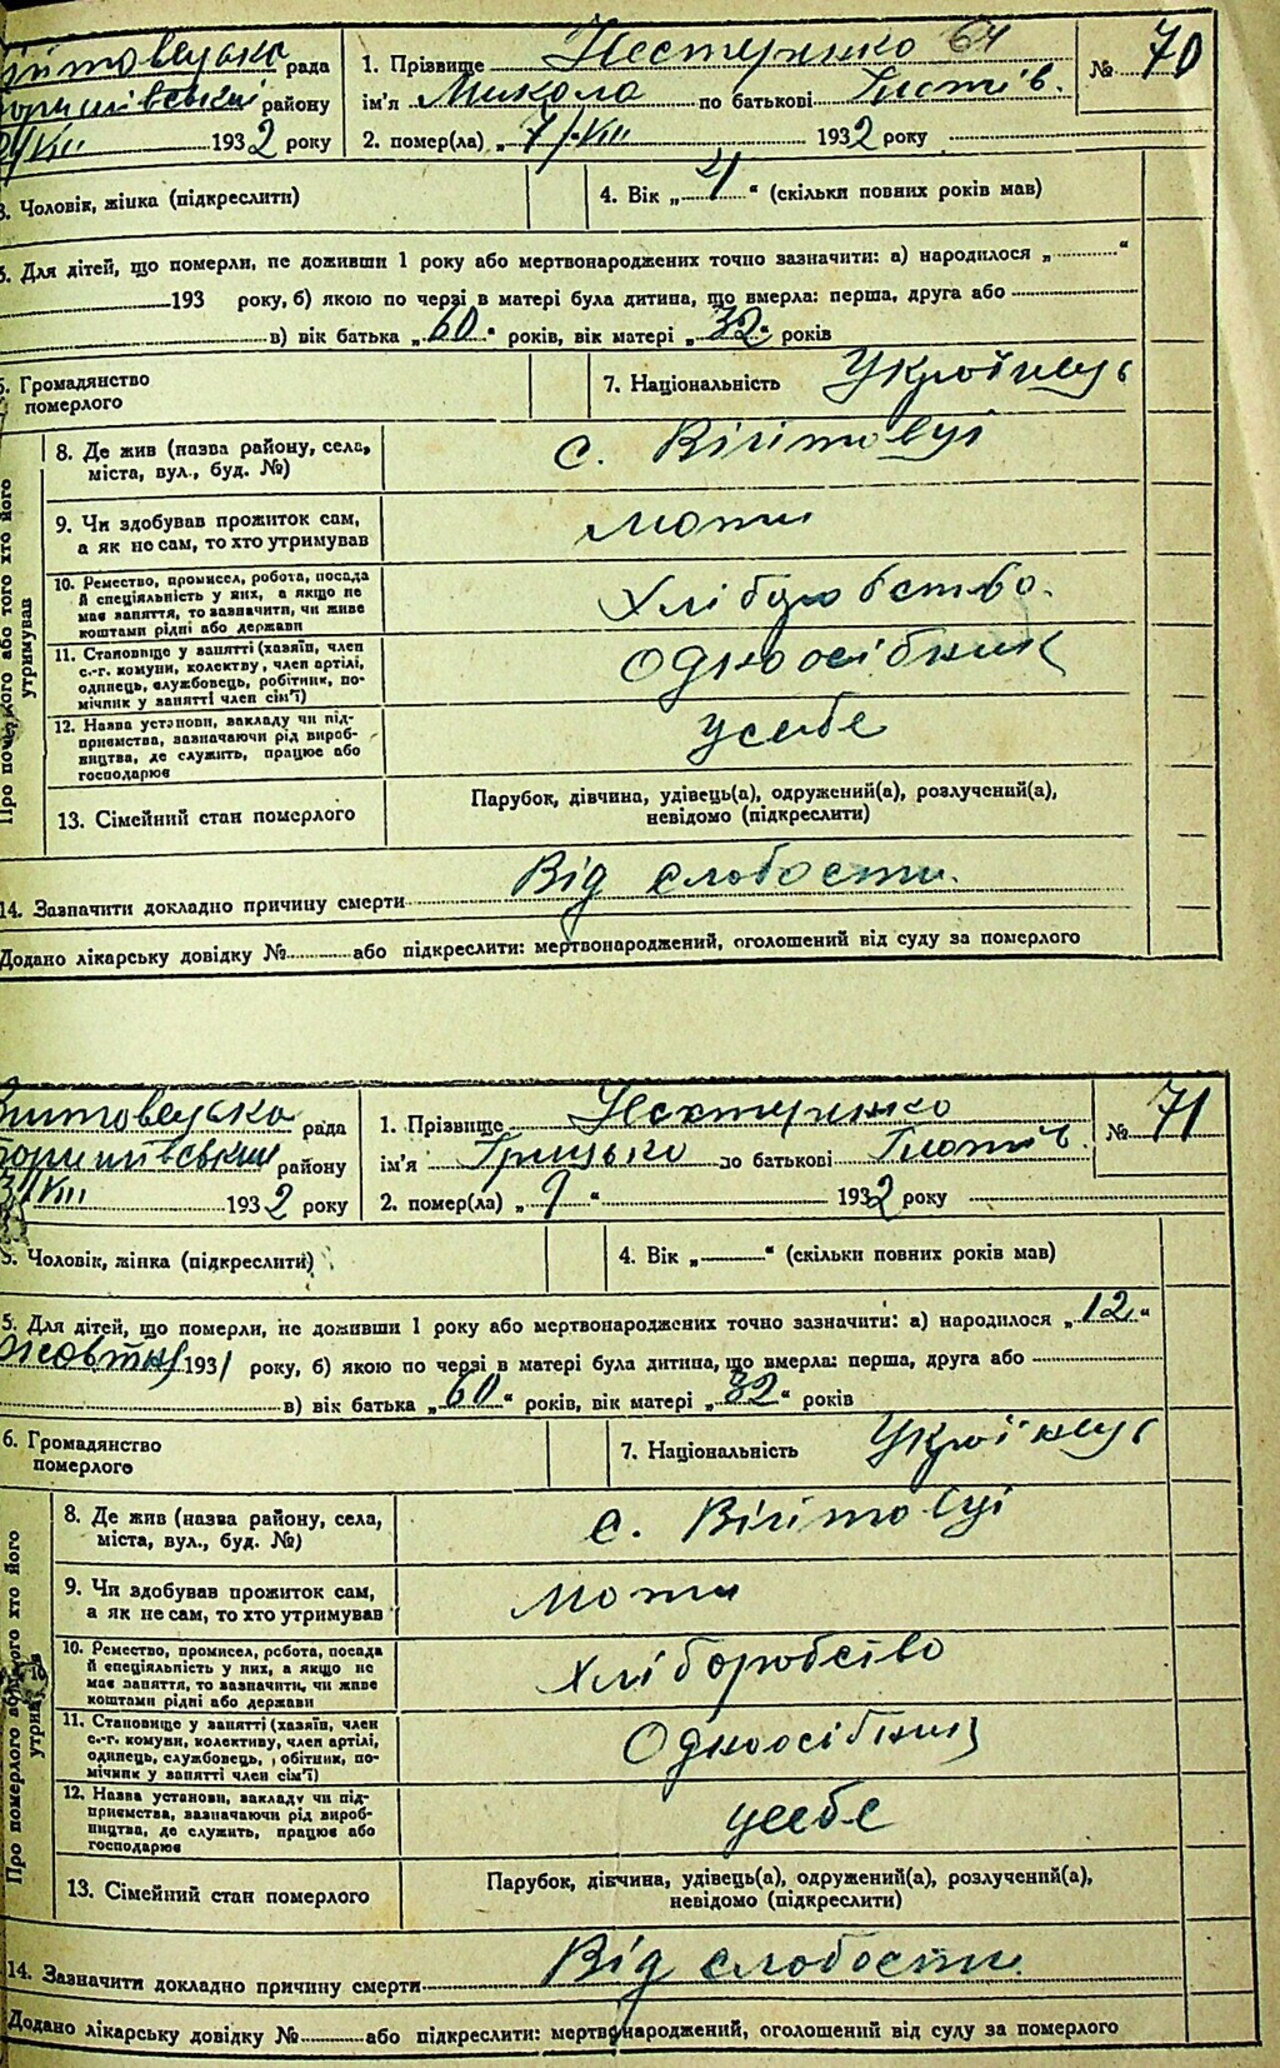 рада
району
VIII 1932 року
1. Прізвище Нестеренко 64
ім'я Микола по батькові
2. помер(ла) „ 7/VIII 1932 року
№ 70
3. Чоловік, жінка (підкреслити)
4. Вік „ 4 “ (скільки повних років мав)
5. Для дітей, що померли, не доживши 1 року або мертвонароджених точно зазначити: а) народилося „ “
193 року, б) якою по черзі в матері була дитина, що вмерла: перша, друга або
в) вік батька „ 60 “ років, вік матері „ 32 “ років
6. Громадянство
померлого
7. Національність Українець
Про померлого або того хто його
утримував
8. Де жив (назва району, села,
міста, вул., буд. №)
с. Війтовці
9. Чи здобував прожиток сам,
а як не сам, то хто утримував
мати
10. Ремество, промисел, робота, посада
й спеціяльність у них, а якщо не
має заняття, то зазначити, чи живе
коштами рідні або держави
Хліборобство.
11. Становище у занятті (хазяїн, член
с.-г. комуни, колективу, член артілі,
одинець, службовець, робітник, по-
мічник у занятті член сім'ї)
Одноосібник
12. Назва установи, закладу чи під-
приємства, зазначаючи рід вироб-
ництва, де служить, працює або
господарює
усебе
13. Сімейний стан померлого
Парубок, дівчина, удівець(а), одружений(а), розлучений(а),
невідомо (підкреслити)
14. Зазначити докладно причину смерти Від слабости.
Додано лікарську довідку № або підкреслити: мертвонароджений, оголошений від суду за померлого
рада
району
VIII 1932 року
1. Прізвище Нестеренко
ім'я Грицько по батькові
2. помер(ла) „ 9 “ 1932 року
№ 71
3. Чоловік, жінка (підкреслити)
4. Вік „ “ (скільки повних років мав)
5. Для дітей, що померли, не доживши 1 року або мертвонароджених точно зазначити: а) народилося „ 12 “
Жовтня 1931 року, б) якою по черзі в матері була дитина, що вмерла: перша, друга або
в) вік батька „ 60 “ років, вік матері „ 32 “ років
6. Громадянство
померлого
7. Національність Українець
Про померлого або того хто його
8. Де жив (назва району, села,
міста, вул., буд. №)
с. Війтовці
9. Чи здобував прожиток сам,
а як не сам, то хто утримував
мати
10. Ремество, промисел, робота, посада
й спеціяльність у них, а якщо не
має заняття, то зазначити, чи живе
коштами рідні або держави
Хліборобство
11. Становище у занятті (хазяїн, член
с.-г. комуни, колективу, член артілі,
одинець, службовець, робітник, по-
мічник у занятті член сім'ї)
Одноосібник
12. Назва установи, закладу чи під-
приємства, зазначаючи рід вироб-
ництва, де служить, працює або
господарює
усебе
13. Сімейний стан померлого
Парубок, дівчина, удівець(а), одружений(а), розлучений(а),
невідомо (підкреслити)
14. Зазначити докладно причину смерти Від слабости.
Додано лікарську довідку № або підкреслити: мертвонароджений, оголошений від суду за померлого